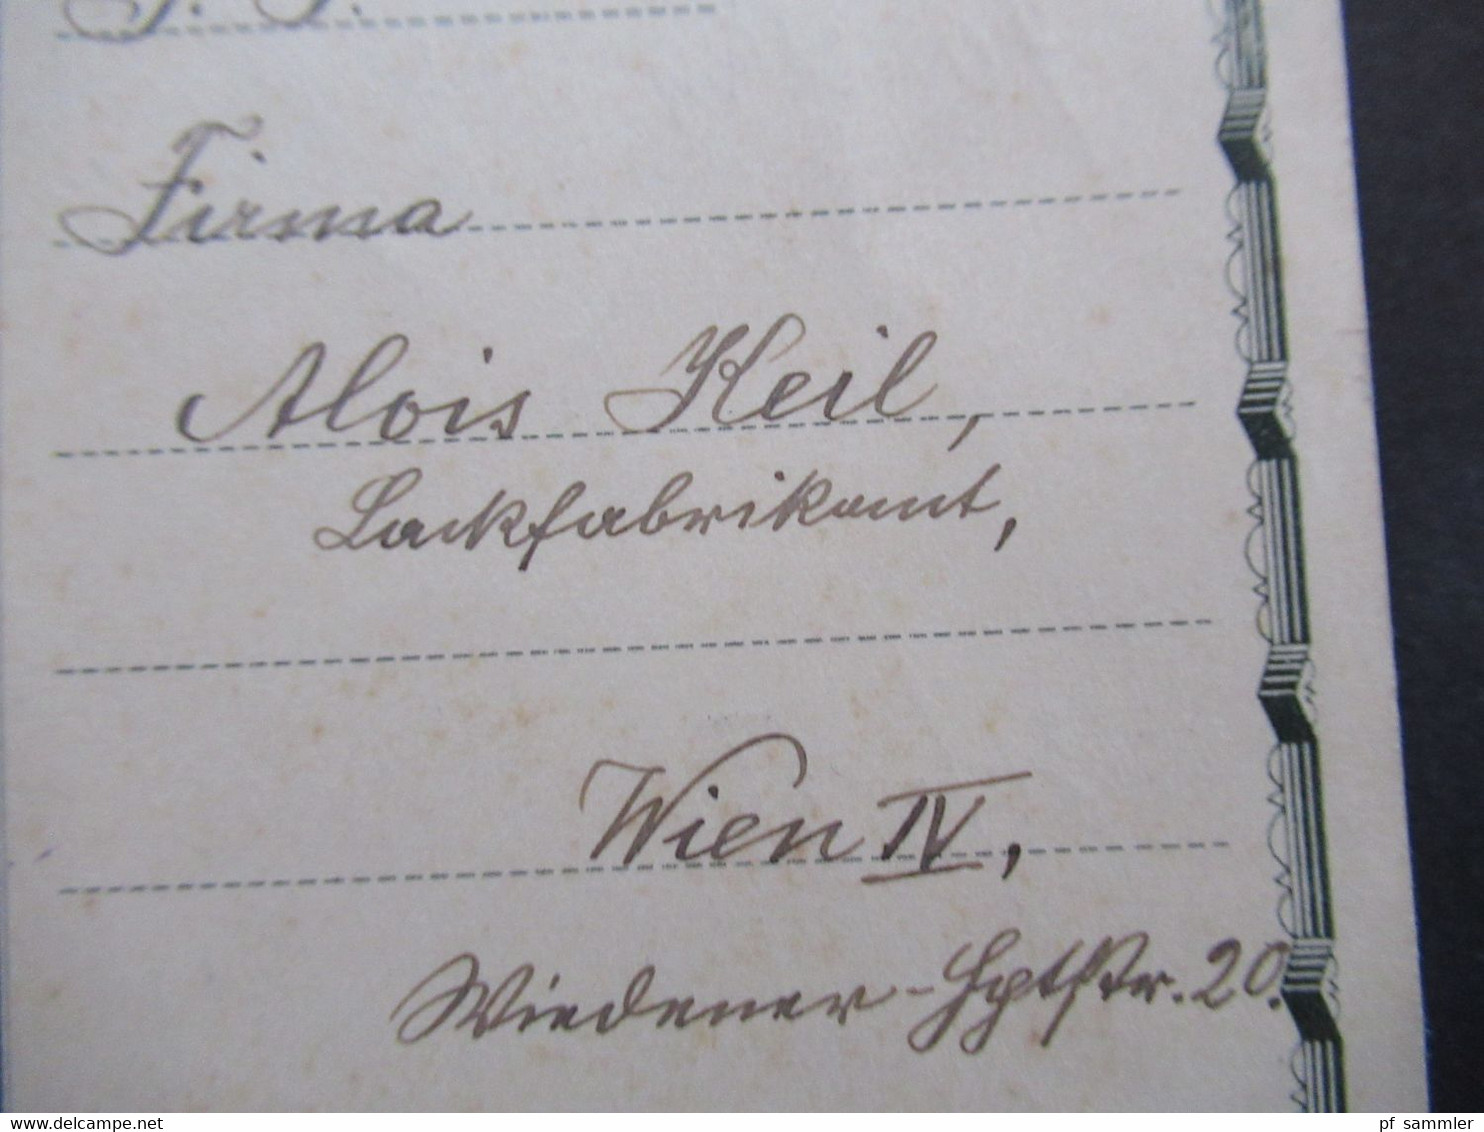 Firma
Alois Keil,
Lackfabrikant,
Wien IV,
Wiedener-Hptstr. 20.
www.delcampe.net
pf_sammler